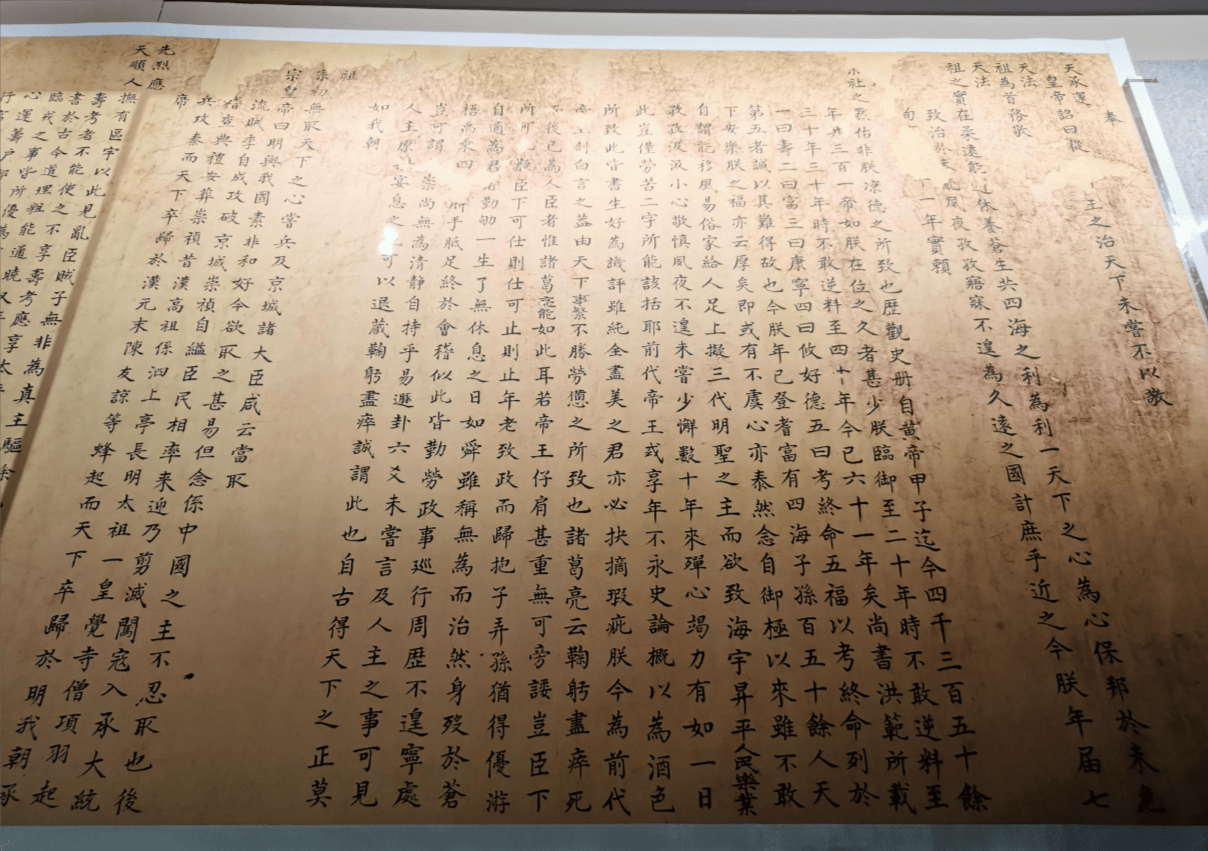 奉
天承運
皇帝詔曰從 王之治天下未嘗不以敬
天法
祖為首務敬
天法
祖之實在柔遠能邇休養蒼生共四海之利為利一天下之心為心保邦於未危
致治於未亂夙夜孜孜寤寐不遑為久遠之國計庶乎近之今朕年屆七
旬 一年實賴
社之默佑非朕涼德之所致也歷觀史册自黃帝甲子迄今四千三百五十餘
年共三百一帝如朕在位之久者甚少朕臨御至二十年時不敢逆料至
三十年三十年時不敢逆料至四十年今已六十一年矣尚書洪範所載
一曰壽二曰富三曰康寧四曰攸好德五曰考終命五福以考終命列於
第五者誠以其難得故也今朕年已登耆富有四海子孫百五十餘人天
下安樂朕之福亦云厚矣即或有不虞心亦泰然念自御極以來雖不敢
自謂能移風易俗家給人足上擬三代明聖之主而欲致海宇昇平人民樂業
孜孜汲汲小心敬慎夙夜不遑未嘗少懈數十年來殫心竭力有如一日
此豈僅勞苦二字所能該括耶前代帝王或享年不永史論概以為酒色
所致此皆書生好為譏評雖純全盡美之君亦必抉摘瑕疵朕今為前代
剖白言之蓋由天下事繁不勝勞憊之所致也諸葛亮云鞠躬盡瘁死
後已為人臣者惟諸葛亮能如此耳若帝王仔肩甚重無可旁諉豈臣下
所可 擬臣下可仕則仕可止則止年老致政而歸抱子弄孫猶得優游
自適為君者勤劬一生了無休息之日如舜雖稱無為而治然身歿於蒼
梧禹乘四 胼手胝足終於會稽似此皆勤勞政事巡行周歷不遑寧處
豈可謂 崇尚無為清靜自持乎易遯卦六爻未嘗言及人主之事可見
人主原 宴息之 可以退藏鞠躬盡瘁誠謂此也自古得天下之正莫
如我朝
祖
宗初無取天下之心嘗兵及京城諸大臣咸云當取
宗皇帝曰明與我國素非和好今欲取之甚易但念係中國之主不忍取也後
流賊李自成攻破京城崇禎自縊臣民相率來迎乃剪滅闖寇入承大統
稽查典禮安葬崇禎昔漢高祖係泗上亭長明太祖一皇覺寺僧項羽起
兵攻秦而天下卒歸於漢元末陳友諒等蜂起而天下卒歸於明我朝承
席
先烈應
天順人撫有區宇以此見亂臣賊子無非為真主驅除
壽考者不能使之不享壽考應享太平